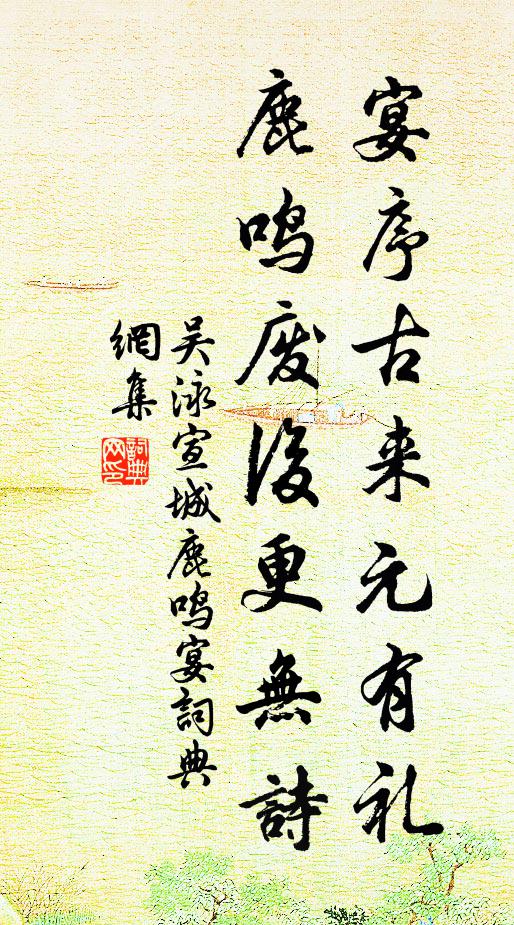 宴序古来元有礼
鹿鸣废後更無詩
吴泳宣城鹿鸣宴詞典
網集
詞典网印